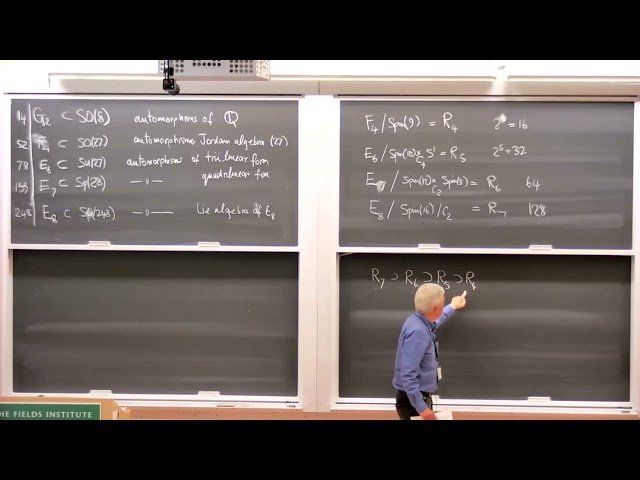 14 G2 ⊂ SO(8) automorphisms of 𝕆
52 F4 ⊂ SO(27) automorphisms Jordan algebra (27)
78 E6 ⊂ SU(27) automorphisms of trilinear form
quadrilinear form
133 E7 ⊂ Sp(28) — ıı —
248 E8 ⊂ SO(248) — ıı — Lie algebra of E8
F4 / Spin(9) = R4 2⁴ = 16
E6 / Spin(10) × C4 S¹ = R5 2⁵ = 32
E / Spin(12) × C2 Spin(3) = R6 64
E8 / Spin(16) / C2 = R7 128
R7 ⊃ R6 ⊃ R5 ⊃ R4
THE FIELDS INSTITUTE